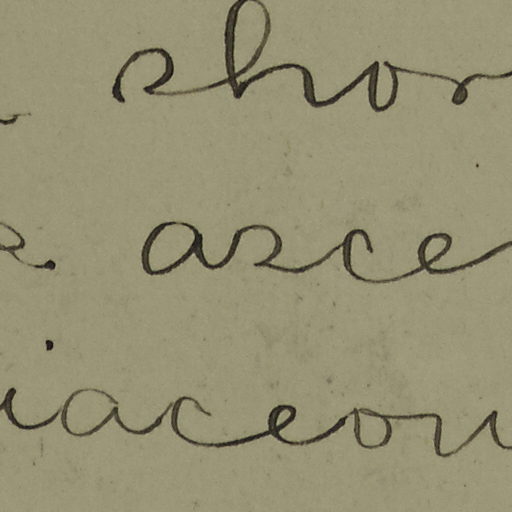 shor
asce
iaceou